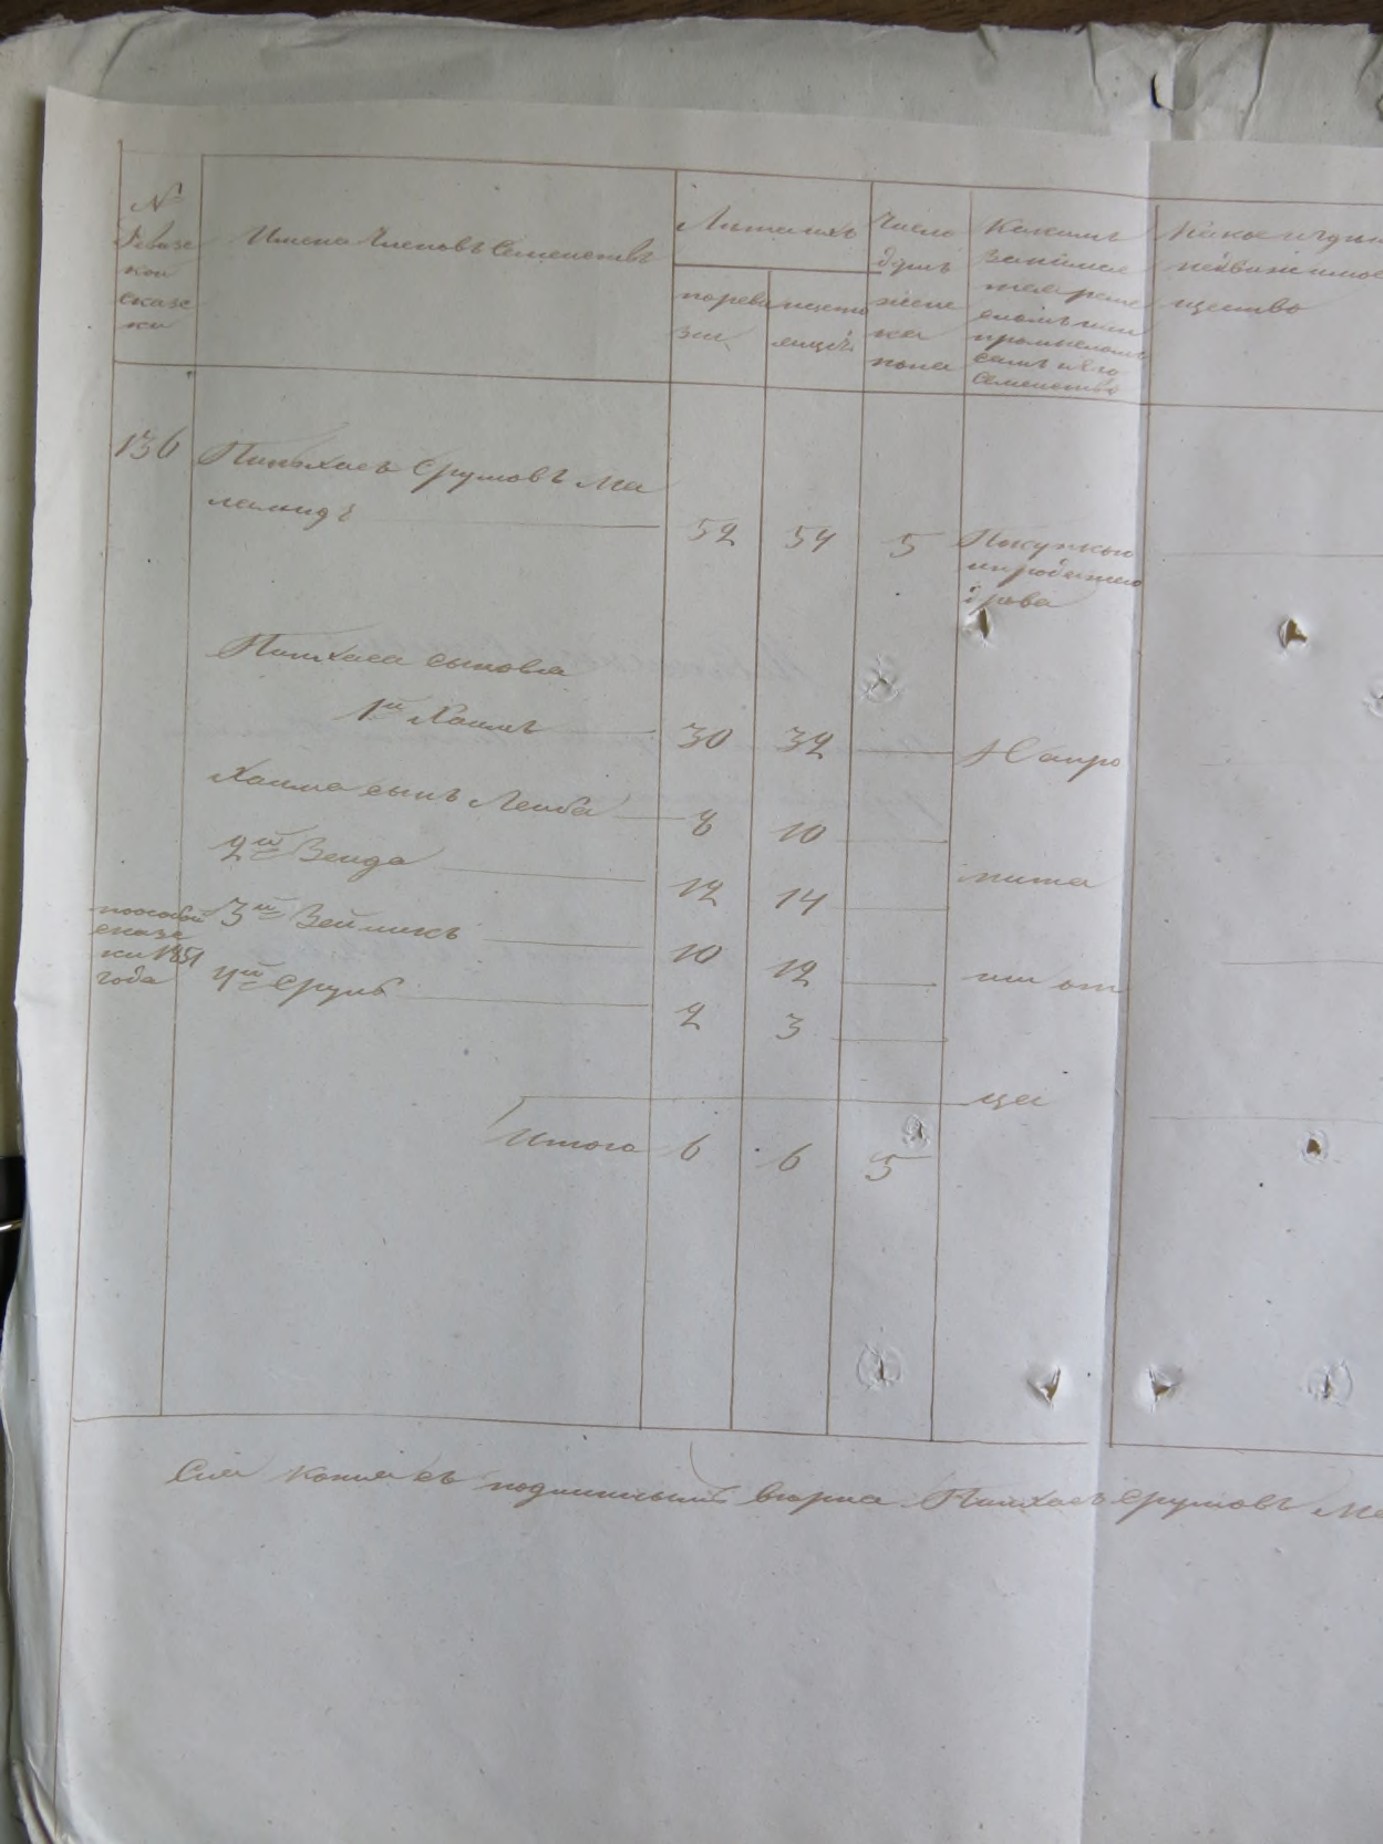 №
Ревизс
кой
сказ
ки
Имена Членовъ Семействъ
Лета ихъ
по реви
зіи
насто
ящія
Число
душъ
женс
ка
пола
Какимъ
занимае
тся реме
сломъ или
промысломъ
самъ и его
Семейство
недвижимое
щество
136
Пинхасъ Срулюовъ Ма
ламидъ
52
54
5
Покупкою
и продажею
дрова
Пинхаса сыновья
1й Хаимъ
30
32
На про
Хаима сынъ Лейба
8
10
2й Зейда
12
14
пита
по особой
сказ
ки 1851
года
3й Зейликъ
10
12
ніи от
4й Сруль
2
3
ца
Итого
6
6
5
Сія копія съ подлиннымъ верна Пинхасъ Срулюовъ Ма